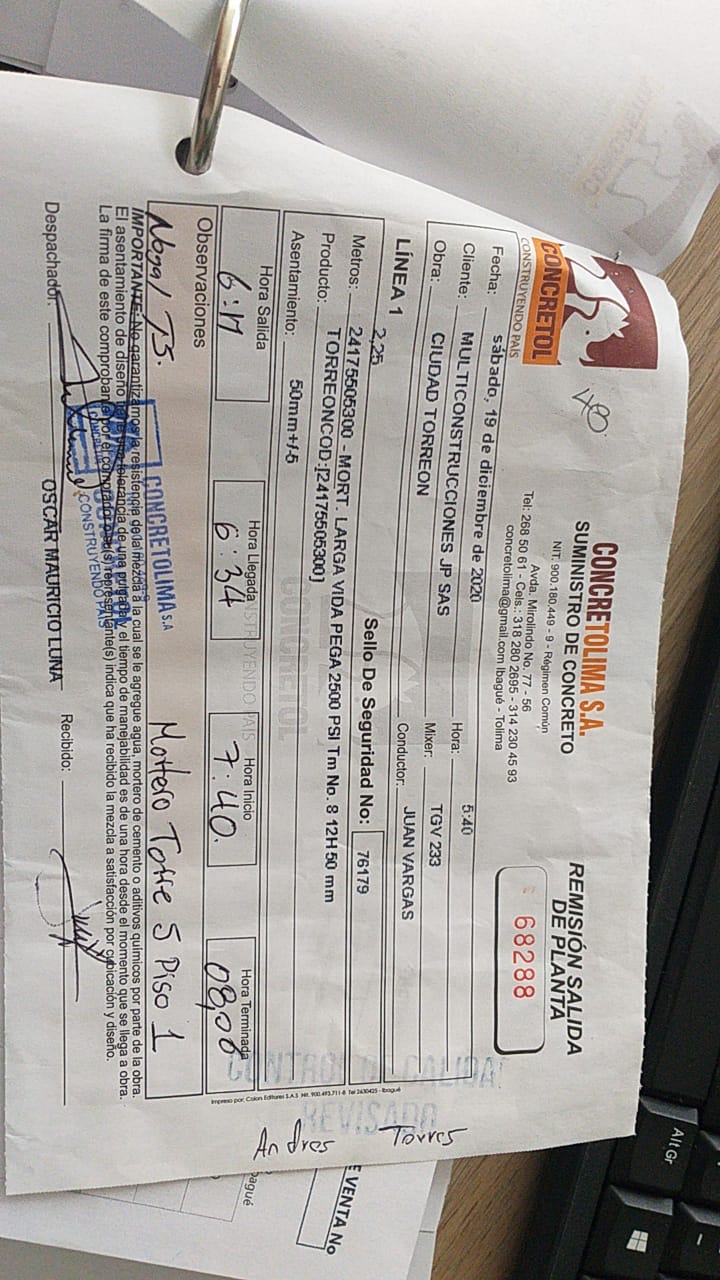 CONCRETOL
CONSTRUYENDO PAIS
48
CONCRETOLIMA S.A.
SUMINISTRO DE CONCRETO
NIT. 900.180.449 - 9 - Régimen Común
Avda. Mirolindo No. 77 - 56
Tel: 268 50 61 - Cels.: 318 280 2695 - 314 230 45 93
concretolima@gmail.com Ibagué - Tolima
REMISIÓN SALIDA
DE PLANTA
68288
Fecha: sábado, 19 de diciembre de 2020 Hora: 5:40
Cliente: MULTICONSTRUCCIONES JP SAS Mixer: TGV 233
Obra: CIUDAD TORREON Conductor: JUAN VARGAS
LÍNEA 1 Sello De Seguridad No: 76179
Metros: 2,25
Producto: 24175505300 - MORT. LARGA VIDA PEGA 2500 PSI Tm No. 8 12H 50 mm
TORREONCOD:[24175505300]
Asentamiento: 50mm+/-5
Hora Salida Hora Llegada Hora Inicio Hora Terminada
6:17 6:34 7:40. 08,00
Observaciones
Nogal T5. Mortero Torre 5 Piso 1
CONCRETOLIMA S.A
CONSTRUYENDO PAIS
IMPORTANTE: No garantizamos la resistencia de la mezcla a la cual se le agregue agua, mortero de cemento o aditivos químicos por parte de la obra.
El asentamiento de diseño tiene una tolerancia de una pulgada y el tiempo de manejabilidad es de una hora desde el momento que se llega a obra.
La firma de este comprobante por el comprador o su(s) representante(s) indica que ha recibido la mezcla a satisfacción por cubicación y diseño.
Despachador: OSCAR MAURICIO LUNA Recibido:
Impreso por: Colon Editores S.A.S Nit. 900.493.711-8 Tel 2630425 - Ibagué
CONTROL DE CALIDAD
REVISADO
Andres Torres
E VENTA No
bagué
Alt Gr